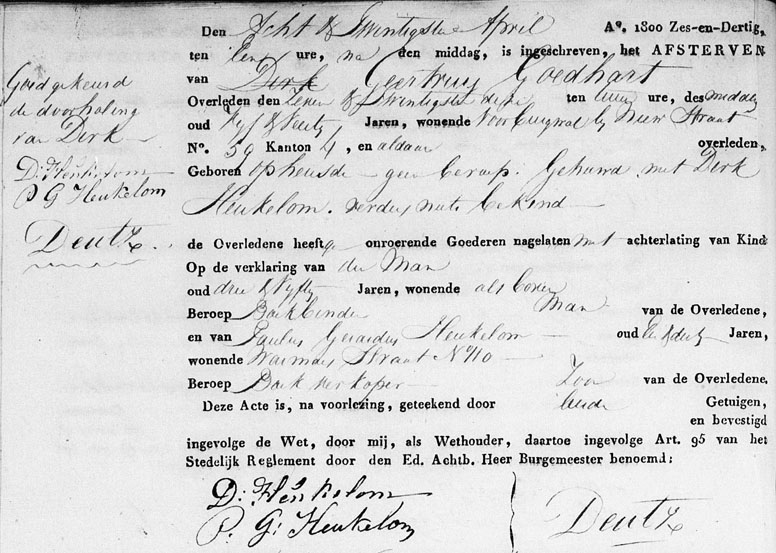 Den Acht & Twintigste April Ao. 1800 Zes-en-Dertig,
ten een ure, na den middag, is ingeschreven, het AFSTERVEN
van Dirk Geertruy Goedhart
Overleden den & Twintigste dezer ten ure, des middags
oud Vyf & Jaren, wonende Voorburgwal by Nieuw Straat
No. 59 Kanton 4, en aldaar overleden,
Geboren opheusde geen beroep. Gehuwd met Dirk
Heukelom. verder niets bekend
de Overledene heeft ge onroerende Goederen nagelaten met achterlating van Kind
Op de verklaring van den Man
oud drie & Vyftig Jaren, wonende als boven
Beroep Boekbinder Man van de Overledene,
en van Paulus Gerardus Heukelom oud Jaren,
wonende Warmoes Straat No 10
Beroep Boek verkoper Zoon van de Overledene.
Deze Acte is, na voorlezing, geteekend door beide Getuigen,
en bevestigd
ingevolge de Wet, door mij, als Wethouder, daartoe ingevolge Art. 95 van het
Stedelijk Reglement door den Ed. Achtb. Heer Burgemeester benoemd:
D: Heukelom
P. G: Heukelom
Deutz
Goedgekeurd
de doorhaling
van Dirk
D: Heukelom
P G Heukelom
Deutz.